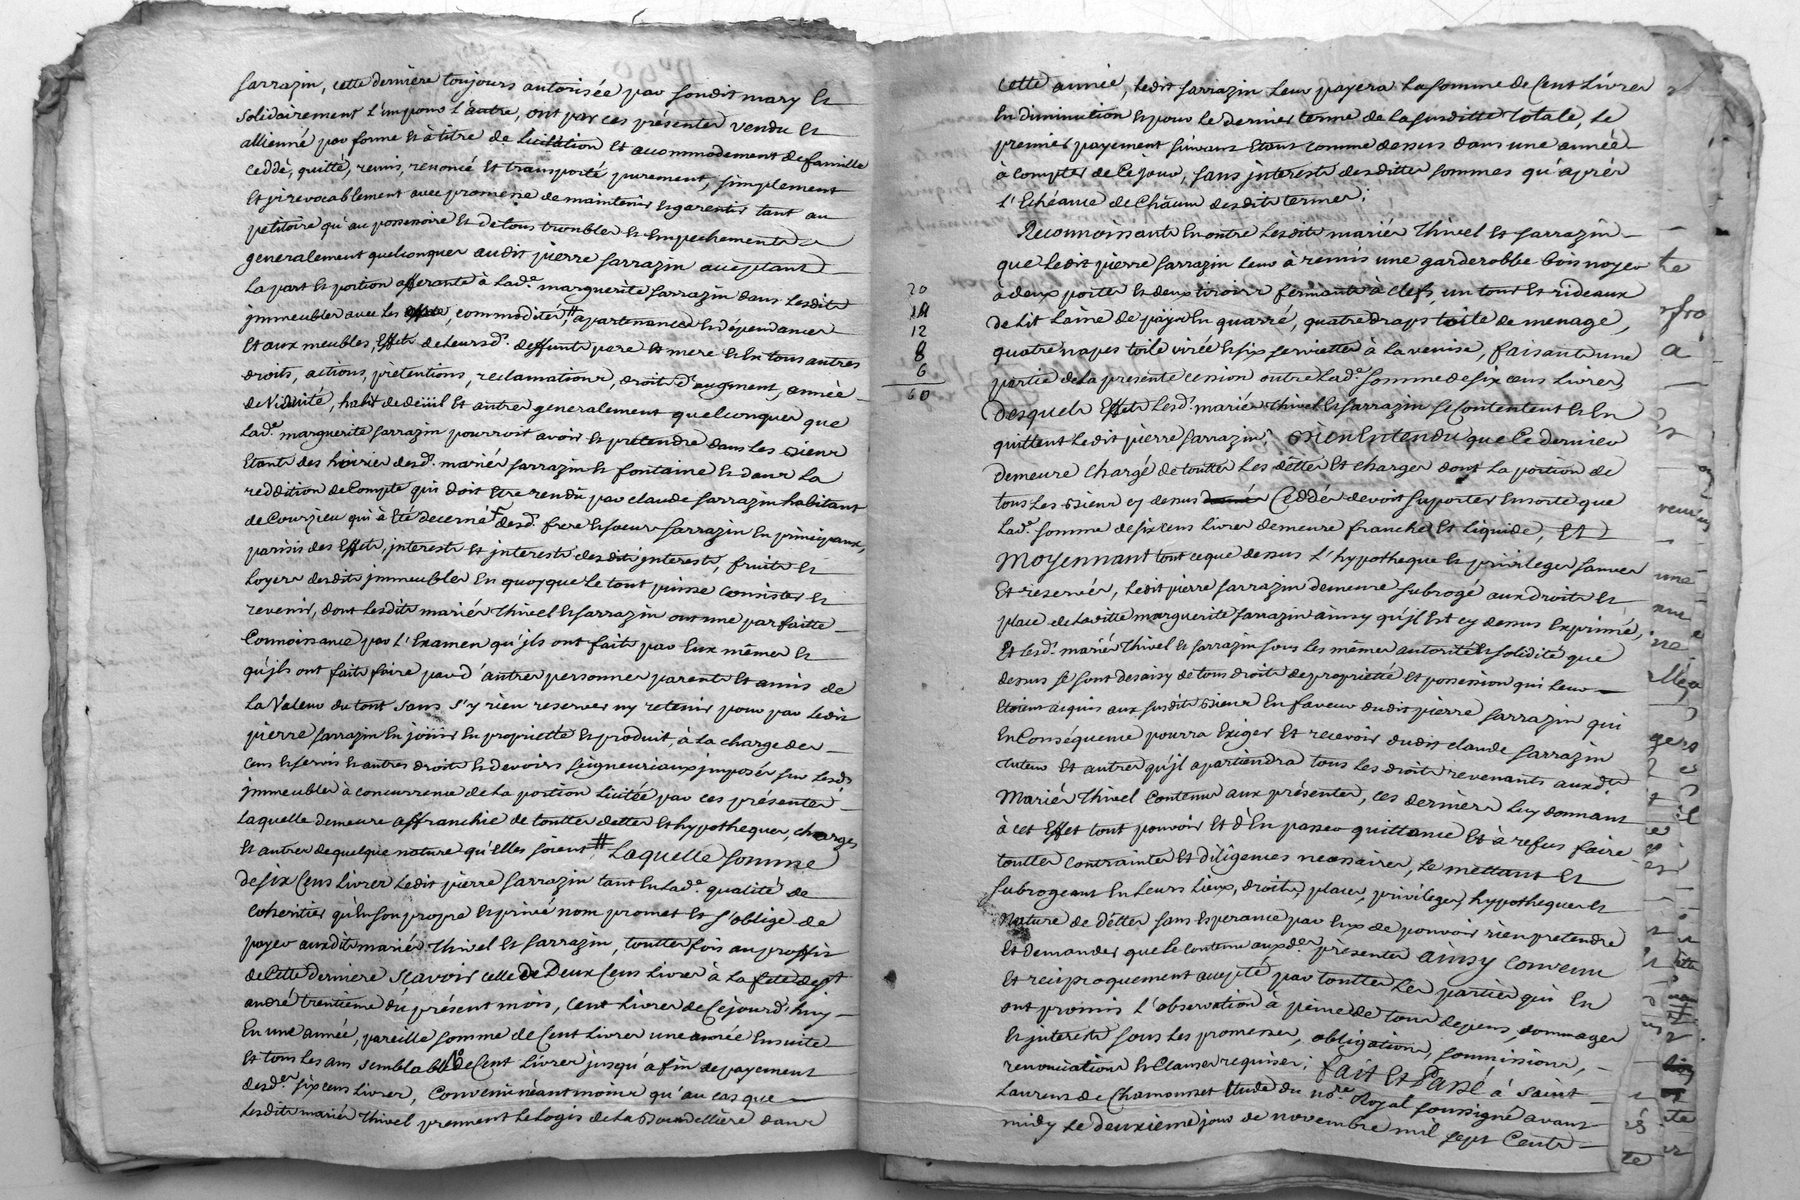 Sarrazin, cette derniere toujours autorisée par sondit mary et
solidairement l'un pour l'autre, ont par ces présentes vendu et
allienné par forme et à titre de licitation et accommodement de famille
ceddé, quitté, remis, renoncé et transporté purement, simplement
et jrrevocablement avec promesse de maintenir et garentir tant au
petitoire qu'au possessoire et de tous troubles et empechements
generalement quelconques audit pierre Sarrazin acceptant
la part et portion afferante à lad.e marguerite Sarrazin dans lesdits
jmmeubles avec les commodités, apartenances et dépendances
et aux meubles, effets de leursd. deffunts pere et mere et en tous autres
droits, actions, pretentions, reclamations, droits d'augment, année
de viduité, habit de deüil et autres generalement quelconques que
lad.e marguerite Sarrazin pourroit avoir et prétendre dans les biens
étants des hoiries desd. mariés Sarrazin et fontaine et dans la
reddition de Compte qui doit etre rendu par claude Sarrazin habitant
de Courzieu qui à eté decerné desd. frere et soeur Sarrazin en principaux,
parisis des effets, jnterests et jnterests desdits jnterests, fruits et
Loyers desdits jmmeubles en quoyque le tout puisse consister et
revenir, dont lesdits mariés thivel et Sarrazin ont une parfaitte
Connoissance par l'Examen qu'jls ont fait par eux mêmes et
qu'jls ont fait faire par d'autres personnes parents et amis de
La Valeur du tout sans s'y rien reserver ny retenir pour par ledit
pierre Sarrazin en joüir en propriette et produit, à la charge des
cens et servis et autres droits et devoirs seigneuriaux jmposés sur lesd.
jmmeubles à concurrence de la portion licitée par ces présentes
laquelle demeure affranchie de touttes dettes et hypotheques, charges
et autres de quelque nature qu'elles soient, # Laquelle somme
de six Cens livres ledit pierre Sarrazin tant en lad.e qualité de
coheritier qu'en son propre et privé nom promet et s'oblige de
payer auxdits mariés thivel et Sarrazin, touttes fois au proffit
de cette derniere Scavoir celle de Deux Cens livres à la fete de st
andré trentieme du présent mois, Cent livres de Cejourd'huy
en une année, pareille somme de Cent livres une année ensuite
et tous les ans semblable de Cent livres jusqu'à fin de payement
desd. six cens livres, Convenu néantmoins qu'au cas que
lesdits mariés thivel prennent le logis de la dans
cette année, ledit Sarrazin leur payera la somme de Cent livres
en diminution et pour le dernier terme de la susditte totale, le
premier payement suivant étant comme dessus dans une année
à compter de Ce jour, sans jnterests desdittes sommes qu'aprés
l'Echeance de Chacun desdits termes;
Reconnoissants en outre lesdits mariés thivel et Sarrazin
que ledit pierre Sarrazin leur à remis une garderobbe bois noyer
à deux portes et deux tiroirs fermants à clefs, un tour et rideaux
de lit laine de pays en quarré, quatre draps toile de menage,
quatre napes toile virée et six serviettes à la venise, faisants une
partie de la presente cession outre lad.e somme de six cens livres,
desquels effets lesd. mariés thivel et Sarrazin se Contentent et en
quittent ledit pierre Sarrazin, bien entendu que le dernier
demeure chargé de touttes les dettes et charges dont la portion de
tous les biens cy dessus Ceddés devoit suporter en sorte que
lad.e somme de six cens livres demeure franche et liquide, et
Moyennant tout ce que dessus l'hypotheque et privileges sauves
et reservés, ledit pierre Sarrazin demeure subrogé aux droits et
place de laditte marguerite Sarrazin ainsy qu'jl est cy dessus exprimé,
et lesd. mariés thivel et Sarrazin sous les mêmes autorité et solidité que
dessus se sont dessaisy de tous droits de proprieté et possession qui leur
etoient acquis aux susdits biens en faveur dudit pierre Sarrazin qui
en Conséquence pourra Exiger et recevoir dudit claude Sarrazin
tuteur et autres qu'jl apartiendra tous les droits revenants auxd.ts
Mariés thivel Contenus aux présentes, ces derniers luy donnant
à cet effet tout pouvoir et d'en passer quittance et à refus faire
touttes contraintes et diligences necessaires, le mettant et
subrogeant en leurs lieux, droits, place, privileges, hypotheques et
Nature de dettes sans esperance par eux de pouvoir rien pretendre
et demander que le contenu auxd. présentes ainsy convenu
et reciproquement accepté par touttes les parties qui en
ont promis l'observation à peine de tous depens, dommages
et jnterests sous les promesses, obligations, soumissions,
renonciations et Clauses requises; fait et Passé à Saint
Laurens de Chamousset étude du no.re Royal soussigné avant
midy le deuxieme jour de novembre mil sept Cents
20
12
8
6
60